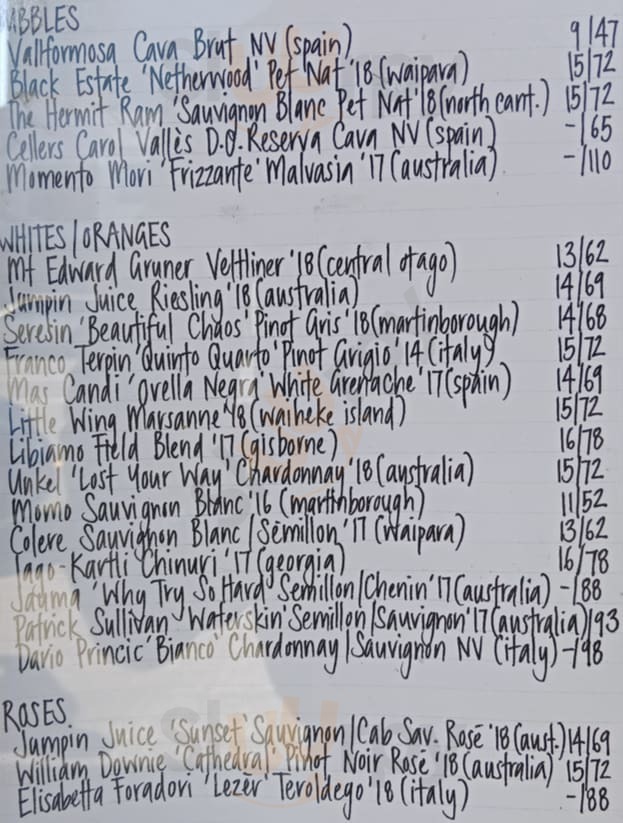 BUBBLES
Vallformosa Cava Brut NV (spain) 9/47
Black Estate 'Netherwood' Pet Nat '18 (waipara) 15/72
The Hermit Ram 'Sauvignon Blanc Pet Nat '18 (north cant.) 15/72
Cellers Carol Vallès D.O. Reserva Cava NV (spain) -/65
Momento Mori 'Frizzante' Malvasia '17 (australia) -/110
WHITES/ORANGES
Mt Edward Gruner Veltliner '18 (central otago) 13/62
Jumpin Juice Riesling '18 (australia) 14/69
Seresin 'Beautiful Chaos' Pinot Gris '18 (martinborough) 14/68
Franco Terpin 'Quinto Quarto' Pinot Grigio '14 (italy) 15/72
Mas Candi 'ovella Negra' White Grenache '17 (spain) 14/69
Little Wing Marsanne '18 (waiheke island) 15/72
Libiamo Field Blend '17 (gisborne) 16/78
Unkel 'Lost Your Way' Chardonnay '18 (australia) 15/72
Momo Sauvignon Blanc '16 (martinborough) 11/52
Colere Sauvignon Blanc/Semillon '17 (Waipara) 13/62
Iago-Kartli Chinuri '17 (georgia) 16/78
Jauma 'Why Try So Hard' Semillon/Chenin '17 (australia) -/88
Patrick Sullivan 'Waterskin' Semillon/Sauvignon '17 (australia) /93
Dario Princic 'Bianco' Chardonnay/Sauvignon NV (italy) -/98
ROSES
Jumpin Juice 'Sunset' Sauvignon/Cab Sav. Rosé '18 (aust.) 14/69
William Downie 'Cathedral' Pinot Noir Rosé '18 (australia) 15/72
Elisabetta Foradori 'Lezèr' Teroldego '18 (italy) -/88